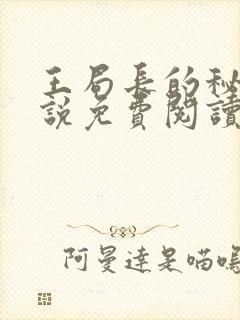 王局長的秘
說免費閱讀
阿曼達是喵嗚